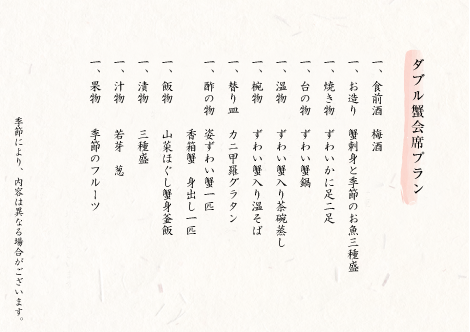 ダブル蟹会席プラン
一、食前酒 梅酒
一、お造り 蟹刺身と季節のお魚三種盛
一、焼き物 ずわいかに足二足
一、台の物 ずわい蟹鍋
一、温物 ずわい蟹入り茶碗蒸し
一、椀物 ずわい蟹入り温そば
一、替り皿 カニ甲羅グラタン
一、酢の物 姿ずわい蟹一匹
香箱蟹 身出し一匹
一、飯物 山菜ほぐし蟹身釜飯
一、漬物 三種盛
一、汁物 若芽 葱
一、果物 季節のフルーツ
季節により、内容は異なる場合がございます。